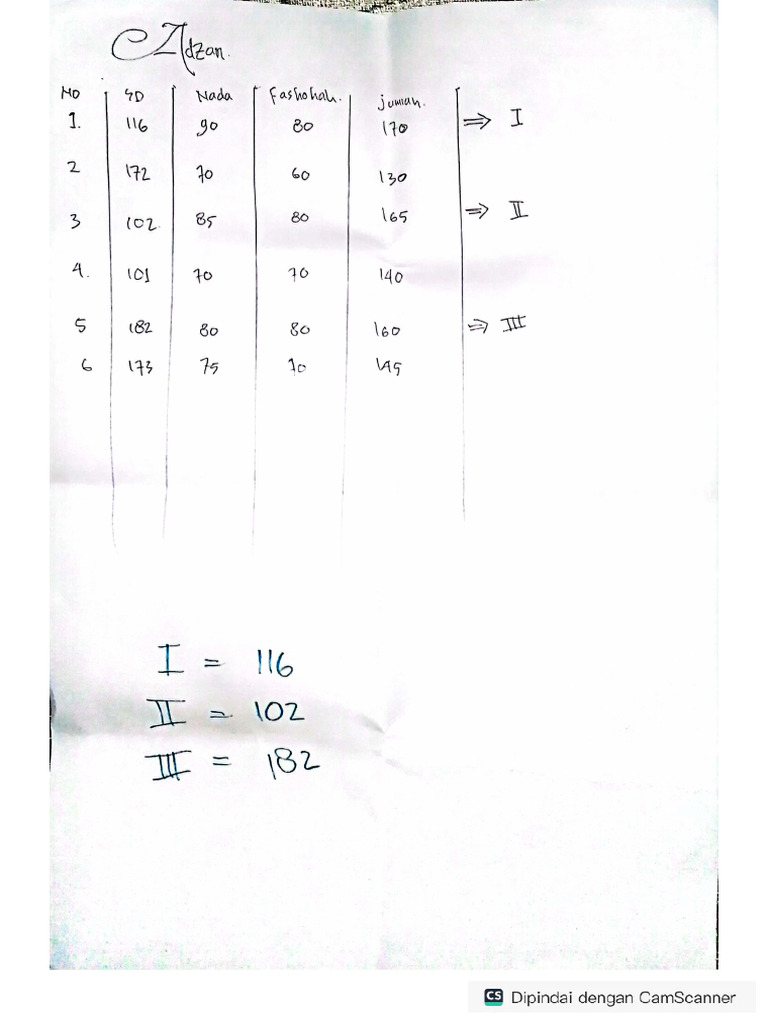 Adzan.
No SD Nada Fashohah. jumlah.
1. 116 90 80 170 ⇒ I
2 172 70 60 130
3 102. 85 80 165 ⇒ II
4. 101 70 70 140
5 182 80 80 160 ⇒ III
6 173 75 70 145
I = 116
II = 102
III = 182
CS Dipindai dengan CamScanner